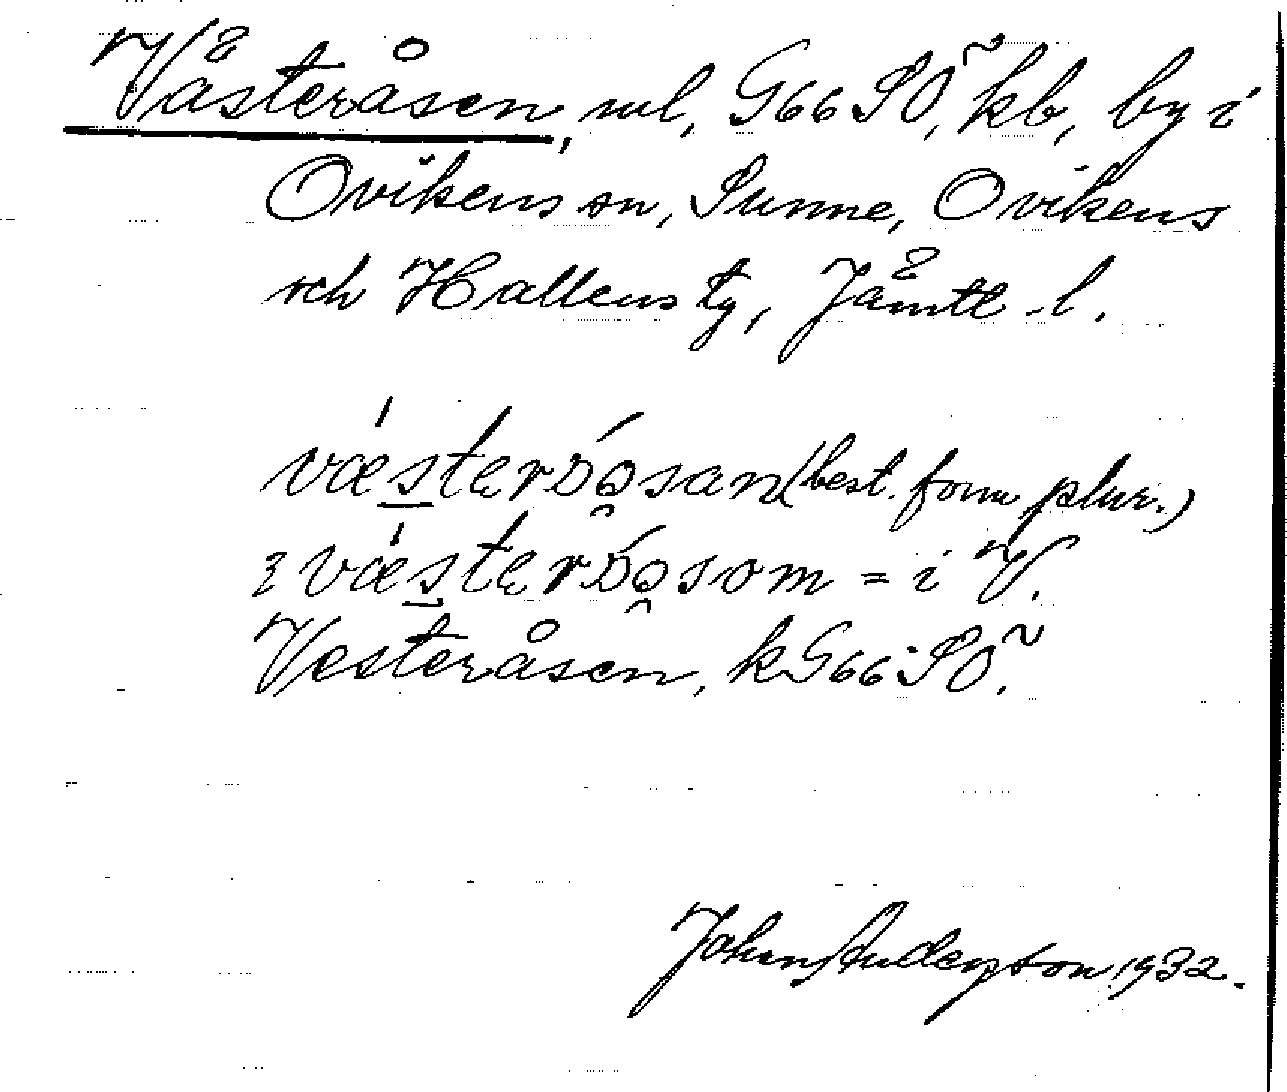 Västeråsen, ml, G66SÖ, kb, by i
Ovikens sn, Sunne, Ovikens
och Hallens tg, Jämtl. l.
væsteråsan (best. form plur.)
væsteråsom = i V.
Vesteråsen, kG66SÖ.
John Anderson 1932.